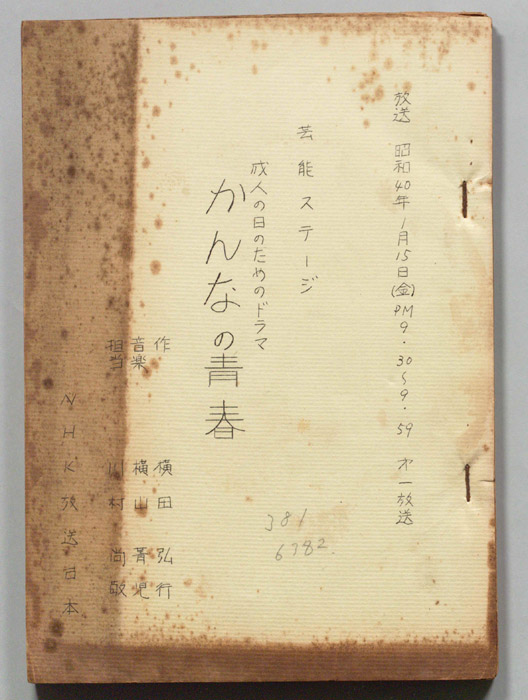 放送 昭和40年1月15日(金)PM9・30〜9・59 才一放送
芸能ステージ
成人の日のためのドラマ
かんなの青春
作 横田弘行
音楽 横山菁児
担当 川村尚敬
NHK放送台本
381
6782.